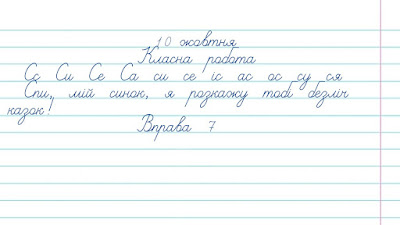 10 жовтня
Класна робота
Сс Си Се Са си се іс ас ос су ся
Спи, мій синок, я розкажу тобі безліч
казок!
Вправа 7